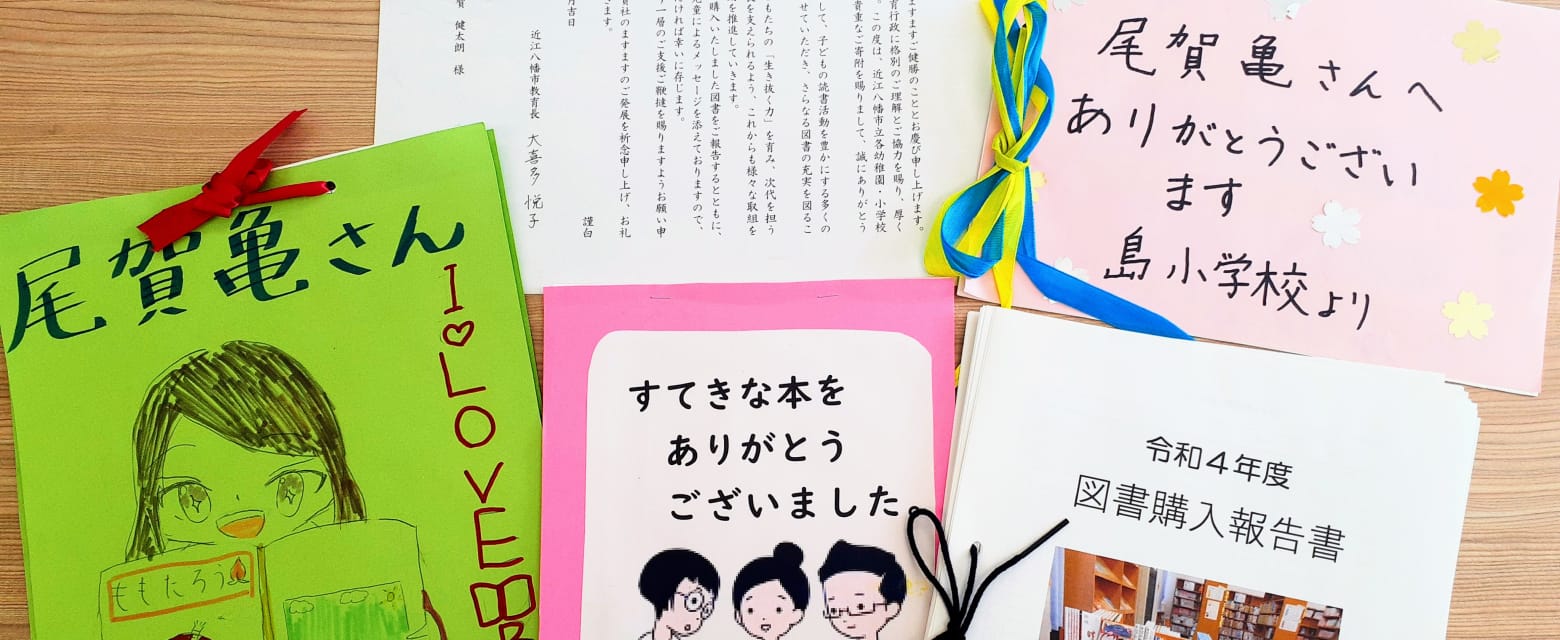 ますますご健勝のこととお慶び申し上げます。
育行政に格別のご理解とご協力を賜り、厚く
。この度は、近江八幡市立各幼稚園・小学校
貴重なご寄附を賜りまして、誠にありがとう
して、子どもの読書活動を豊かにする多くの
せていただき、さらなる図書の充実を図るこ
もたちの「生き抜く力」を育み、次代を担う
長を支えられるよう、これからも様々な取組を
を推進していきます。
購入いたしました図書をご報告するとともに、
児童によるメッセージを添えておりますので、
だければ幸いに存じます。
り一層のご支援ご鞭撻を賜りますようお願い申
貴社のますますのご発展を祈念申し上げ、お礼
きます。
謹白
月吉日
近江八幡市教育長 大喜多 悦子
賀 健太朗 様
尾賀亀さんへ
ありがとうござい
ます
島小学校より
尾賀亀さん
I♡LOVE
ももたろう
すてきな本を
ありがとう
ございました。
令和4年度
図書購入報告書